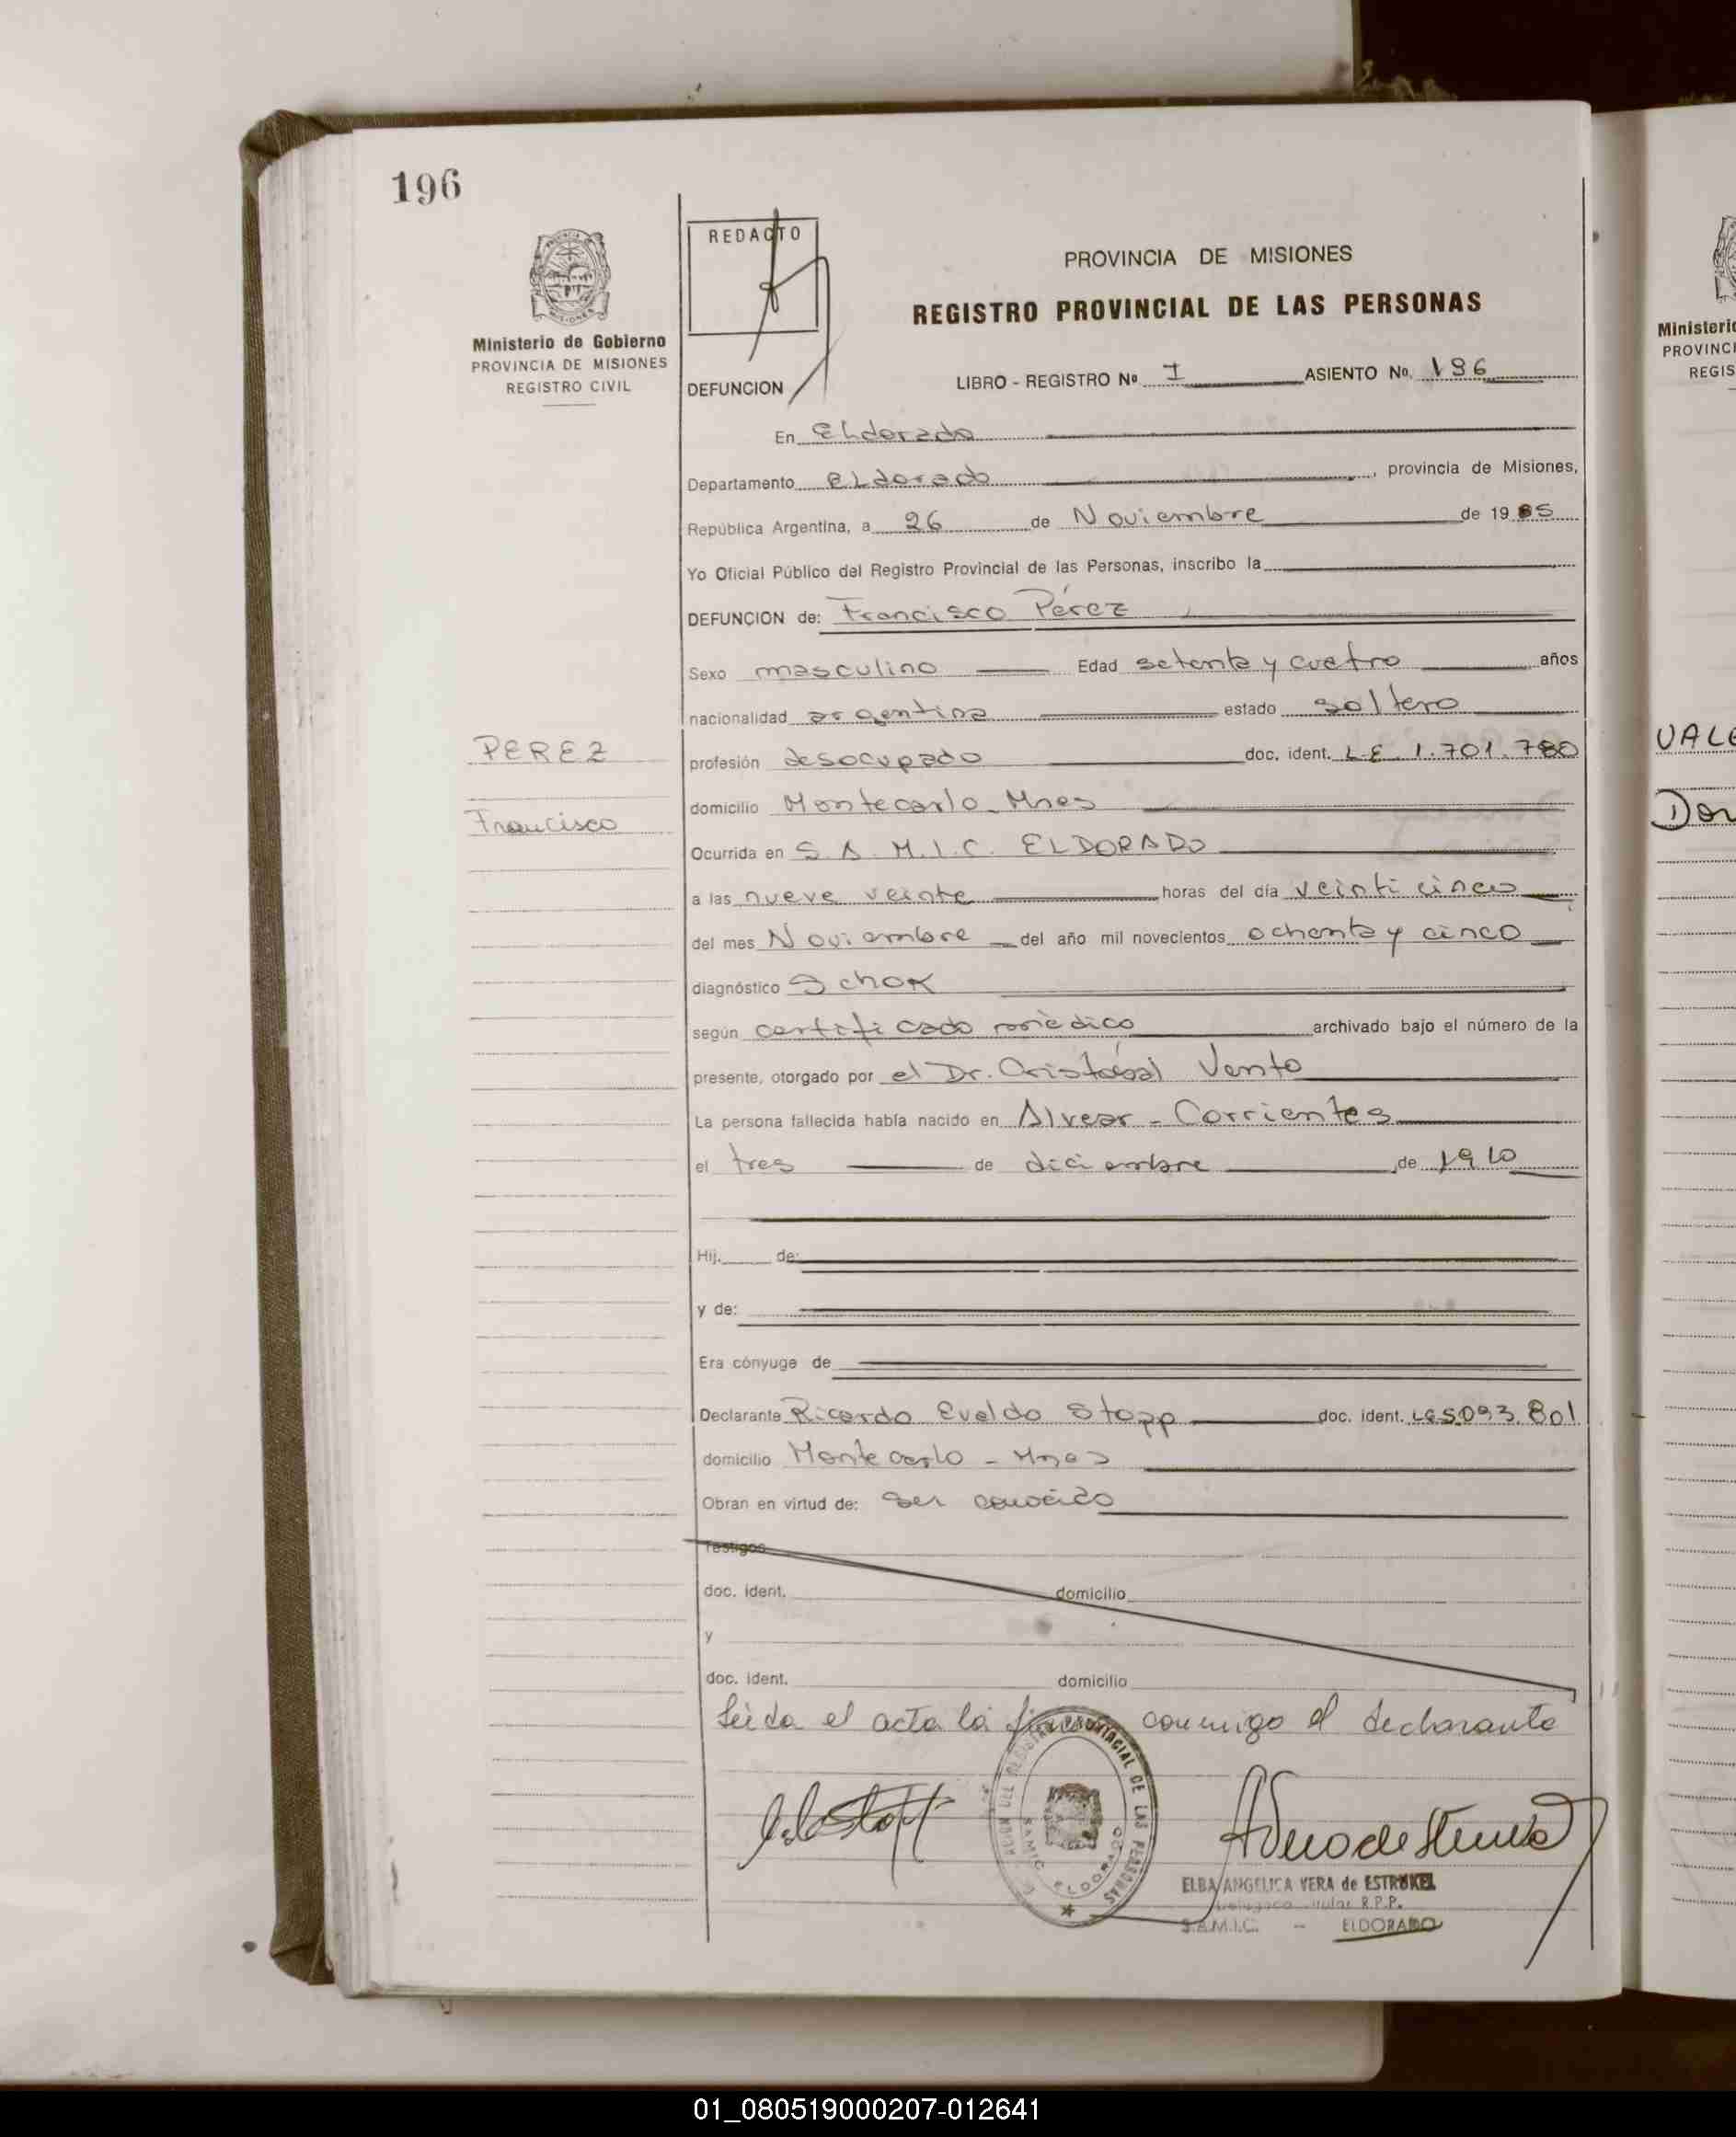 196
Ministerio de Gobierno
PROVINCIA DE MISIONES
REGISTRO CIVIL
REDACTO
PROVINCIA DE MISIONES
REGISTRO PROVINCIAL DE LAS PERSONAS
DEFUNCION
LIBRO - REGISTRO Nº I ASIENTO Nº 196
En Eldorado
Departamento Eldorado, provincia de Misiones,
República Argentina, a 26 de Noviembre de 1985
Yo Oficial Público del Registro Provincial de las Personas, inscribo la
DEFUNCION de: Francisco Pérez
Sexo masculino Edad setenta y cuatro años
nacionalidad argentina estado soltero
PEREZ
Francisco
profesión desocupado doc. ident. L.E. 1.701.780
domicilio Montecarlo - Mnes
Ocurrida en S.A.M.I.C. ELDORADO
a las nueve veinte horas del día veinti cinco
del mes Noviembre del año mil novecientos ochenta y cinco
diagnóstico Schok
según certificado médico archivado bajo el número de la
presente, otorgado por el Dr. Cristóbal Vento
La persona fallecida había nacido en Alvear - Corrientes
el tres de diciembre de 1910
Hij. de:
y de:
Era cónyuge de
Declarante Ricardo Evaldo Stopp doc. ident. LE 5.093.801
domicilio Montecarlo - Mnes
Obran en virtud de: ser conocido
Testigos
doc. ident. domicilio
y
doc. ident. domicilio
Leída el acta la conmigo el declarante
REGISTRO PROVINCIAL DE LAS PERSONAS
SAMIC ELDORADO
ELBA ANGELICA VERA de ESTRUKEL
R.P.P.
S.A.M.I.C. - ELDORADO
Ministerio
PROVINCI
REGIS
VALE
Don
01_080519000207-012641